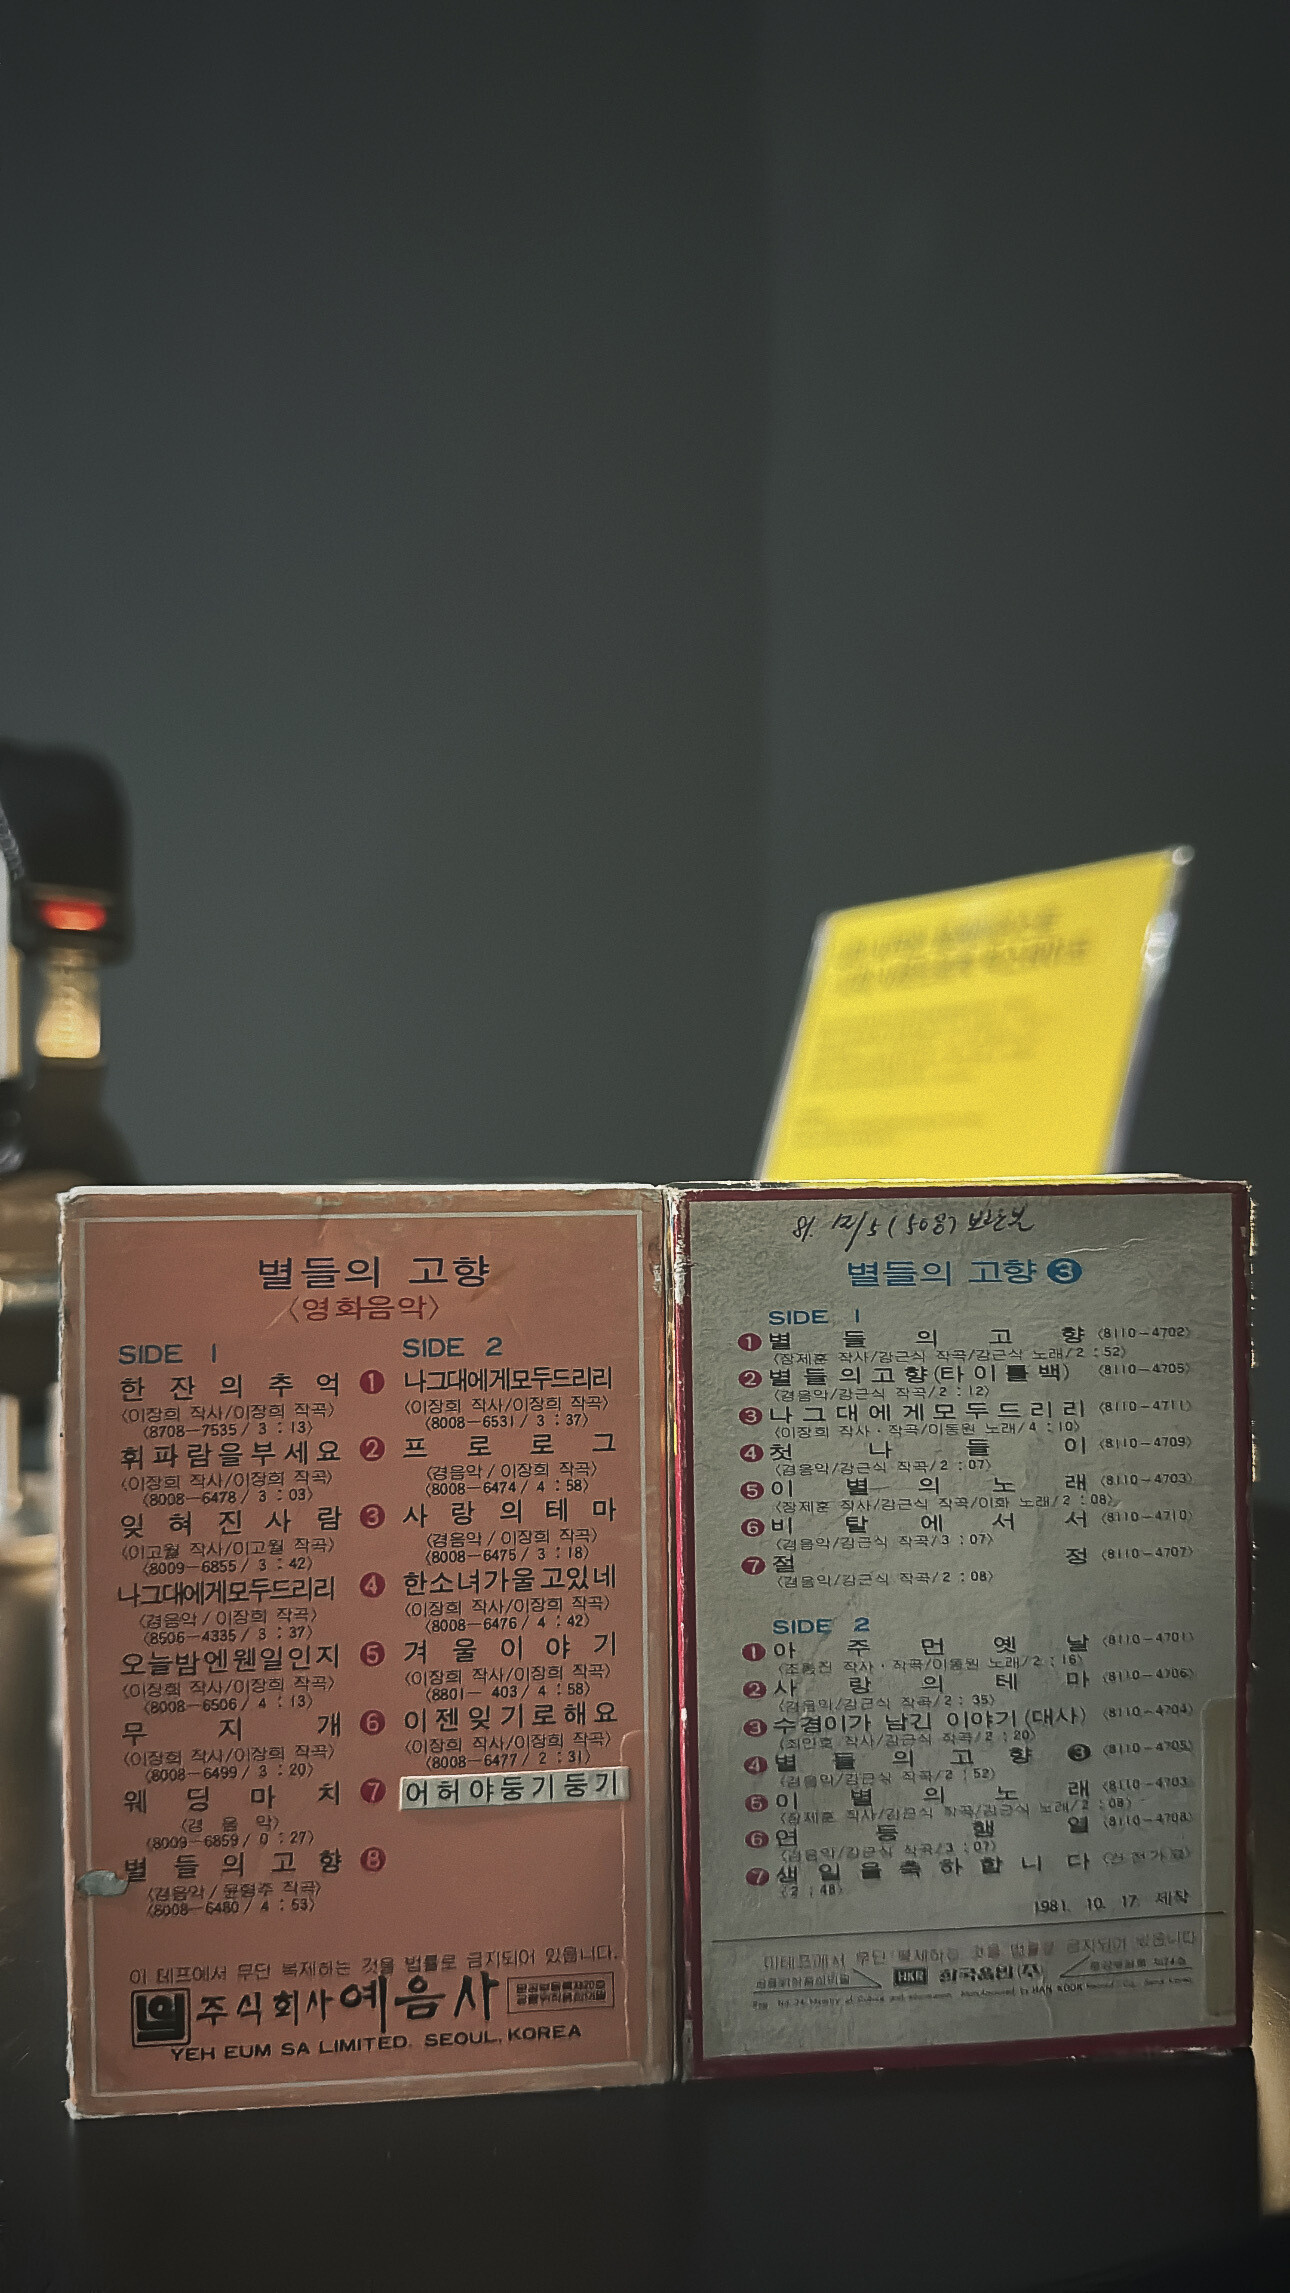 별들의 고향
<영화음악>
SIDE 1
한잔의추억 ①
<이장희 작사/이장희 작곡>
<8708-7535 / 3 : 13>
휘파람을부세요 ②
<이장희 작사/이장희 작곡>
<8008-6478 / 3 : 03>
잊혀진사람 ③
<이고월 작사/이고월 작곡>
<8009-6855 / 3 : 42>
나그대에게모두드리리 ④
<경음악 / 이장희 작곡>
<8506-4335 / 3 : 37>
오늘밤엔웬일인지 ⑤
<이장희 작사/이장희 작곡>
<8008-6506 / 4 : 13>
무지개 ⑥
<이장희 작사/이장희 작곡>
<8008-6499 / 3 : 20>
웨딩마치 ⑦
<경음악>
<8009-6859 / 0 : 27>
별들의고향 ⑧
<경음악 / 윤형주 작곡>
<8008-6480 / 4 : 53>
SIDE 2
나그대에게모두드리리
<이장희 작사/이장희 작곡>
<8008-6531 / 3 : 37>
프로로그
<경음악 / 이장희 작곡>
<8008-6474 / 4 : 58>
사랑의테마
<경음악 / 이장희 작곡>
<8008-6475 / 3 : 18>
한소녀가울고있네
<이장희 작사/이장희 작곡>
<8008-6476 / 4 : 42>
겨울이야기
<이장희 작사/이장희 작곡>
<8801- 403 / 4 : 58>
이젠잊기로해요
<이장희 작사/이장희 작곡>
<8008-6477 / 2 : 31>
어허야둥기둥기
이 테프에서 무단 복제하는 것을 법률로 금지되어 있읍니다.
주식회사 예음사
YEH EUM SA LIMITED. SEOUL, KOREA
별들의 고향 ③
SIDE 1
① 별들의고향 <8110-4702>
<장제훈 작사/강근식 작곡/강근식 노래/2 : 52>
② 별들의고향(타이틀백) <8110-4705>
<경음악/강근식 작곡/2 : 12>
③ 나그대에게모두드리리 <8110-4711>
<이장희 작사·작곡/이동원 노래/4 : 10>
④ 첫나들이 <8110-4709>
<경음악/강근식 작곡/2 : 07>
⑤ 이별의노래 <8110-4703>
<장제훈 작사/강근식 작곡/이화 노래/2 : 08>
⑥ 비탈에서서 <8110-4710>
<경음악/강근식 작곡/3 : 07>
⑦ 절정 <8110-4707>
<경음악/강근식 작곡/2 : 08>
SIDE 2
① 아주먼옛날 <8110-4701>
<조동진 작사·작곡/이동원 노래/2 : 16>
② 사랑의테마 <8110-4706>
<경음악/강근식 작곡/2 : 35>
③ 수경이가 남긴 이야기(대사) <8110-4704>
<최인호 작사/강근식 작곡/2 : 20>
④ 별들의고향 ③ <8110-4705>
<경음악/강근식 작곡/2 : 52>
⑤ 이별의노래 <8110-4703>
<장제훈 작사/강근식 작곡/강근식 노래/2 : 08>
⑥ 연등행열 <8110-4708>
<경음악/강근식 작곡/3 : 07>
⑦ 생일을축하합니다 <건전가요>
<2 : 48>
1981. 10. 17. 제작
이테프에서 무단 복제하는 것을 법률로 금지되어 있읍니다
HKR 한국음반(주)